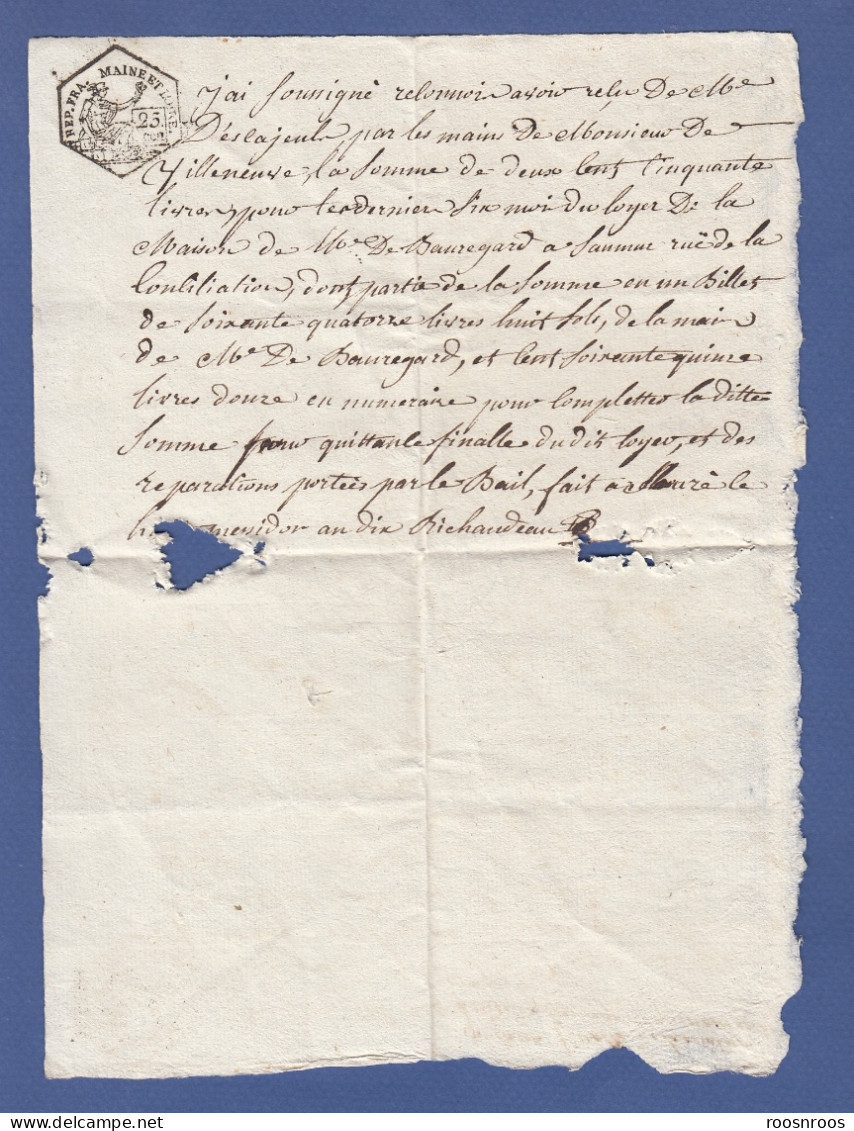 REP. FRA. MAINE ET LOIRE.
25
J'ai soussigné reconnoir avoir reçu De Mde
Descajeul, par les mains de Monsieur De
Villeneuve, la somme de deux cent cinquante
livres, pour les dernier six moi du loyer De la
Maison de Mde De Bauregard a Saumur ruë de la
Conciliation, dont partie de la somme en un Billet
de soixante quatorze livres huit sols, de la main
de Mde De Bauregard, et cent soixante quinze
livres douze en numeraire pour completter la ditte
somme pour quittance finalle du dit loyer, et des
reparations portées par le Bail, fait à le
messidor an dix Richaudeau
roosnroos